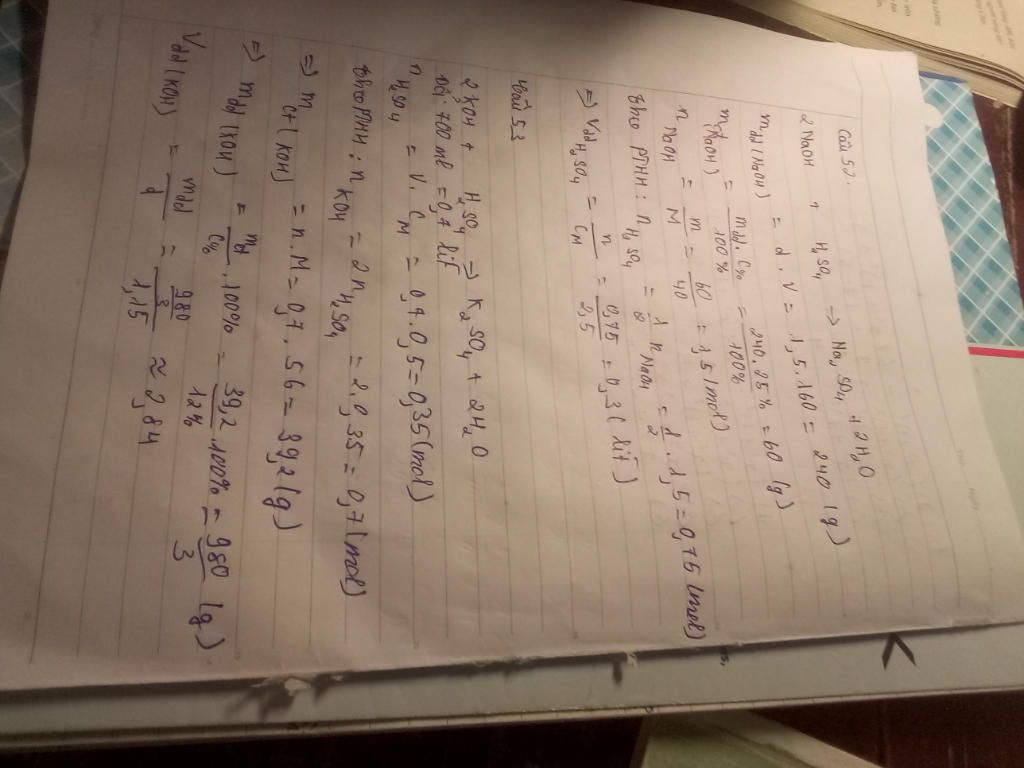 Câu 52.
2 NaOH + H2SO4 → Na2SO4 + 2H2O
mdd(NaOH) = d . V = 1,5 . 160 = 240 (g)
m(NaOH) = mdd . C% / 100% = 240 . 25% / 100% = 60 (g)
n NaOH = m / M = 60 / 40 = 1,5 (mol)
theo PTHH : n H2SO4 = 1/2 n NaOH = 1/2 . 1,5 = 0,75 (mol)
=> Vdd H2SO4 = n / CM = 0,75 / 2,5 = 0,3 ( lít )
Câu 53
2 KOH + H2SO4 => K2SO4 + 2H2O
700 ml = 0,7 lít
n H2SO4 = V . CM = 0,7 . 0,5 = 0,35 (mol)
theo PTHH : n KOH = 2 n H2SO4 = 2 . 0,35 = 0,7 (mol)
=> m ct (KOH) = n . M = 0,7 . 56 = 39,2 (g)
=> mdd (KOH) = mct / C% . 100% = 39,2 / 12% . 100% = 980 / 3 (g)
Vdd (KOH) = mdd / d = 980/3 / 1,15 ≈ 2,84